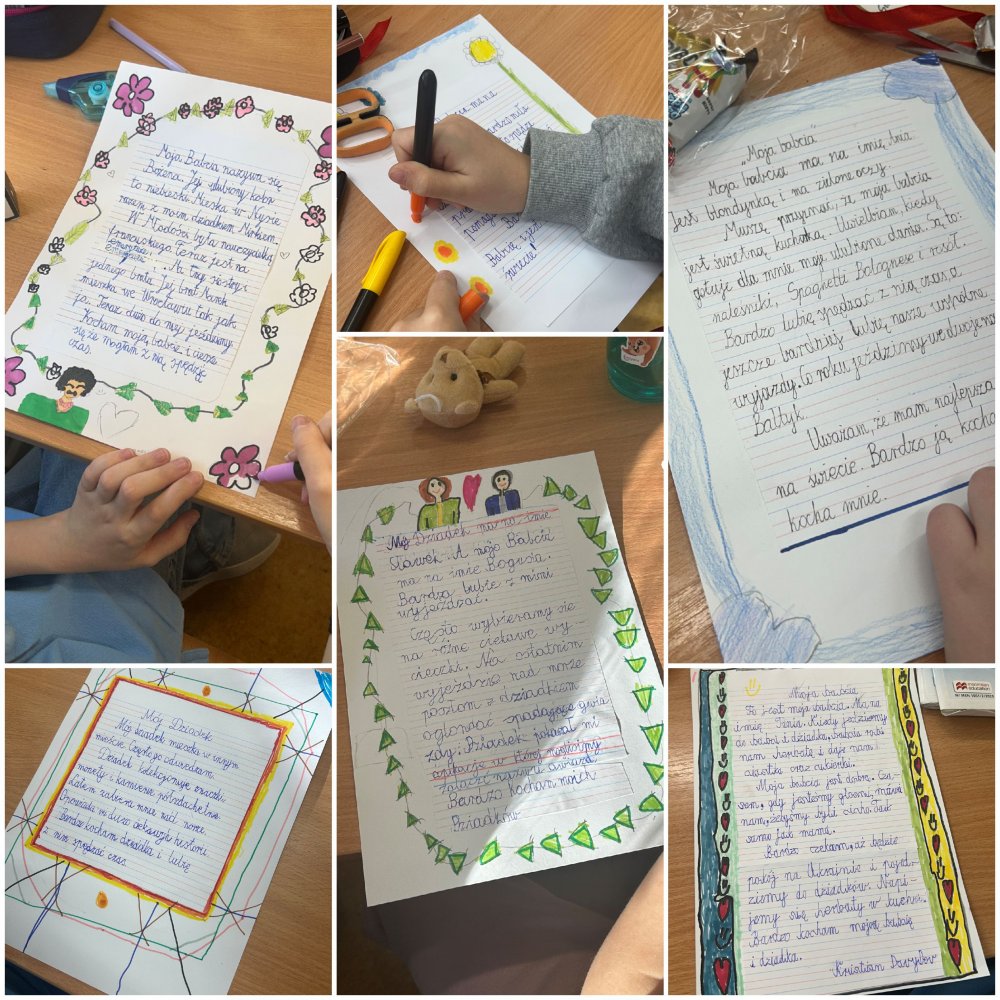 Moja Babcia nazywa się
Bożena. Jej ulubiony kolor
to niebieski. Mieszka w Nysie
razem z moim dziadkiem
W Młodości była nauczycielką
francuskiego. Teraz jest na
emeryturze. Ma trzy siostry i
jednego brata. Jej brat Marek
mieszka we Wrocławiu tak jak
ja. Teraz dużo do niej jeździmy.
Kocham moją babcię i cieszę
się że mogłam z nią spędzić
czas.
ma na
Bardzo
Babcię i
świecie
"Moja babcia"
Moja babcia ma na imię
Jest blondynką i ma zielone oczy.
Muszę przyznać, że moja babcia
jest świetną kucharką. Uwielbiam, kiedy
gotuje dla mnie moje ulubione dania. Są to:
naleśniki, Spaghetti Bolognese i rosół.
Bardzo lubię spędzać z nią czas, a
jeszcze bardziej lubię nasze wspólne
wyjazdy. Co roku jeździmy we dwoje nad
Bałtyk.
Uważam, że mam najlepszą
na świecie. Bardzo ją kocha
kocha mnie.
Mój Dziadek ma na imie
Sławek. A moja Babcia
ma na imie Bogusia.
Bardzo lubie z nimi
wyjeżdżać.
Często wybieramy się
na różne ciekawe wy-
cieczki. Na ostatnim
wyjeździe nad morze
poszłam z dziadkiem
oglądać spadające gwia
zdy. Dziadek pokazał mi
aplikacje w której mogliśmy
zobaczć nazwy gwiazd.
Bardzo kocham moich
Dziadków
Mój Dziadek
Mój dziadek mieszka w innym
mieście. Często go odwiedzam.
Dziadek kolekcjonuje znaczki,
monety i kamienie półszlachetne.
Latem zabiera mnie nad morze.
Opowiada mi dużo ciekawych historii
Bardzo kocham dziadka i lubię
z nim spędzać czas.
Moja babcia
To jest moja babcia. Ma na
imię Tania. Kiedy jedziemy
do babci i dziadka, babcia robi
nam herbatę i daje nam
ciastka oraz cukierki.
Moja babcia jest dobra. Cza-
sem, gdy jesteśmy głośni, mówi
nam, żebyśmy byli cicho. Tak
samo jak mama.
Bardzo czekam, aż będzie
pokój na Ukrainie i pojedz-
ziemy do dziadków. Napi-
jemy się herbaty w kuchni.
Bardzo kocham moją babcię
i dziadka.
Kristian Davydov
macmillan
education